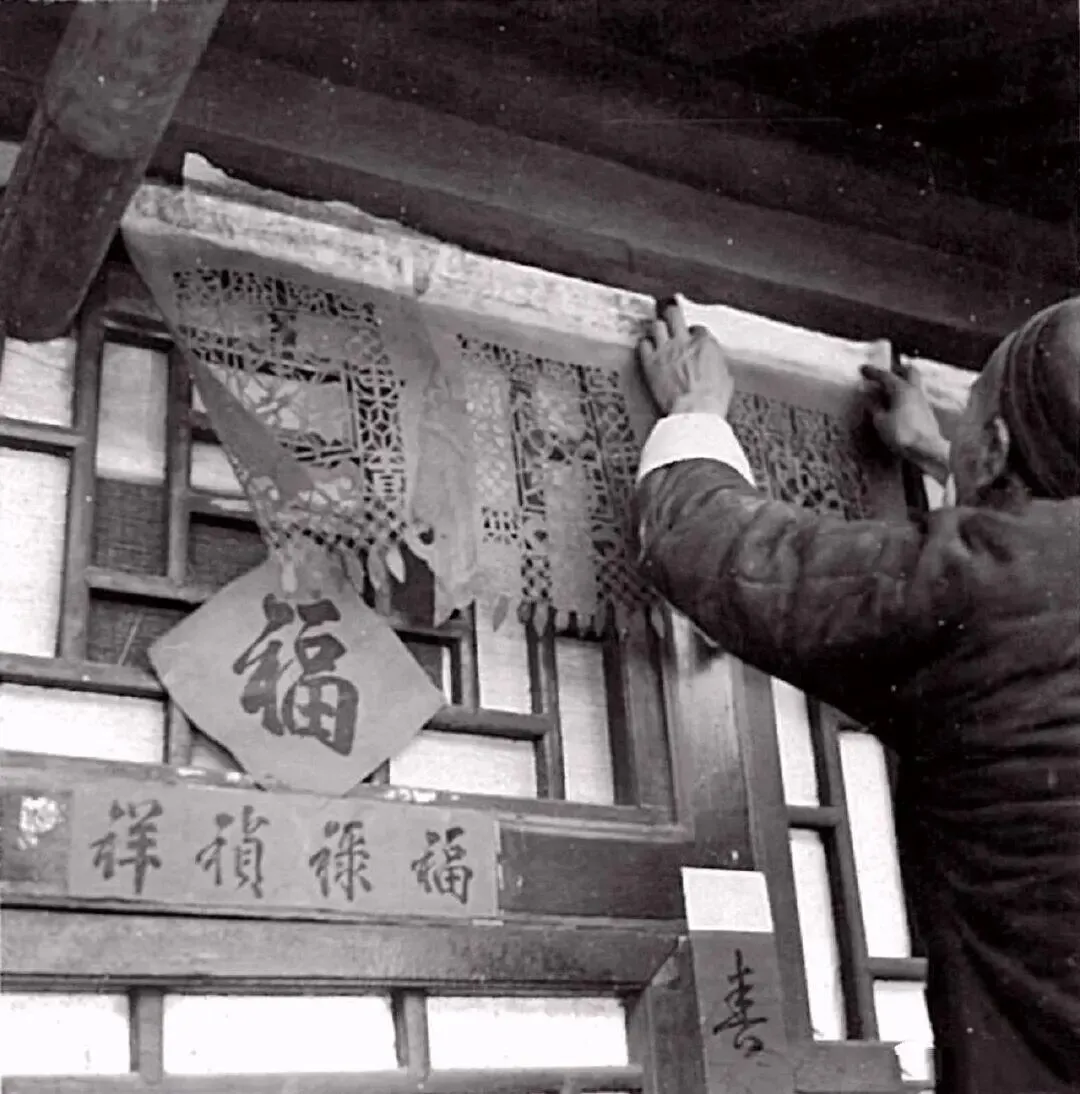 福
福祿禎祥
春